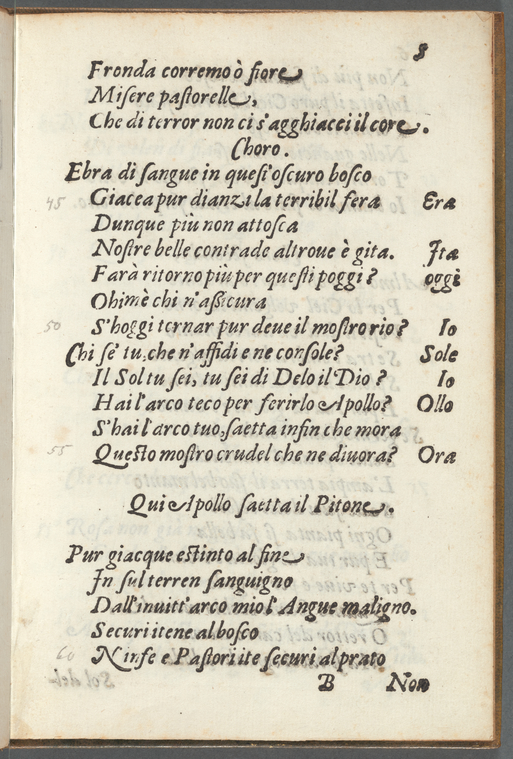 8
Fronda corremo ò fiore
Misere pastorelle,
Che di terror non ci s'agghiacei il core.
Choro.
Ebra di sangue in quest'oscuro bosco
45 Giacea pur dianzi la terribil fera Era
Dunque più non attosca
Nostre belle contrade altroue è gita. Ita
Farà ritorno più per questi poggi? oggi
Ohimè chi n'assicura
50 S'hoggi tornar pur deue il mostro rio? Io
Chi se' tu, che n'affidi e ne console? Sole
Il Sol tu sei, tu sei di Delo il Dio? Io
Hai l'arco teco per ferirlo Apollo? Ollo
S'hai l'arco tuo, saetta infin che mora
55 Questo mostro crudel che ne diuora? Ora
Qui Apollo saetta il Pitone.
Pur giacque estinto al fine
In sul terren sanguigno
Dall'inuitt'arco mio l'Angue maligno.
Securi itene al bosco
60 Ninfe e Pastori ite securi al prato
B Non